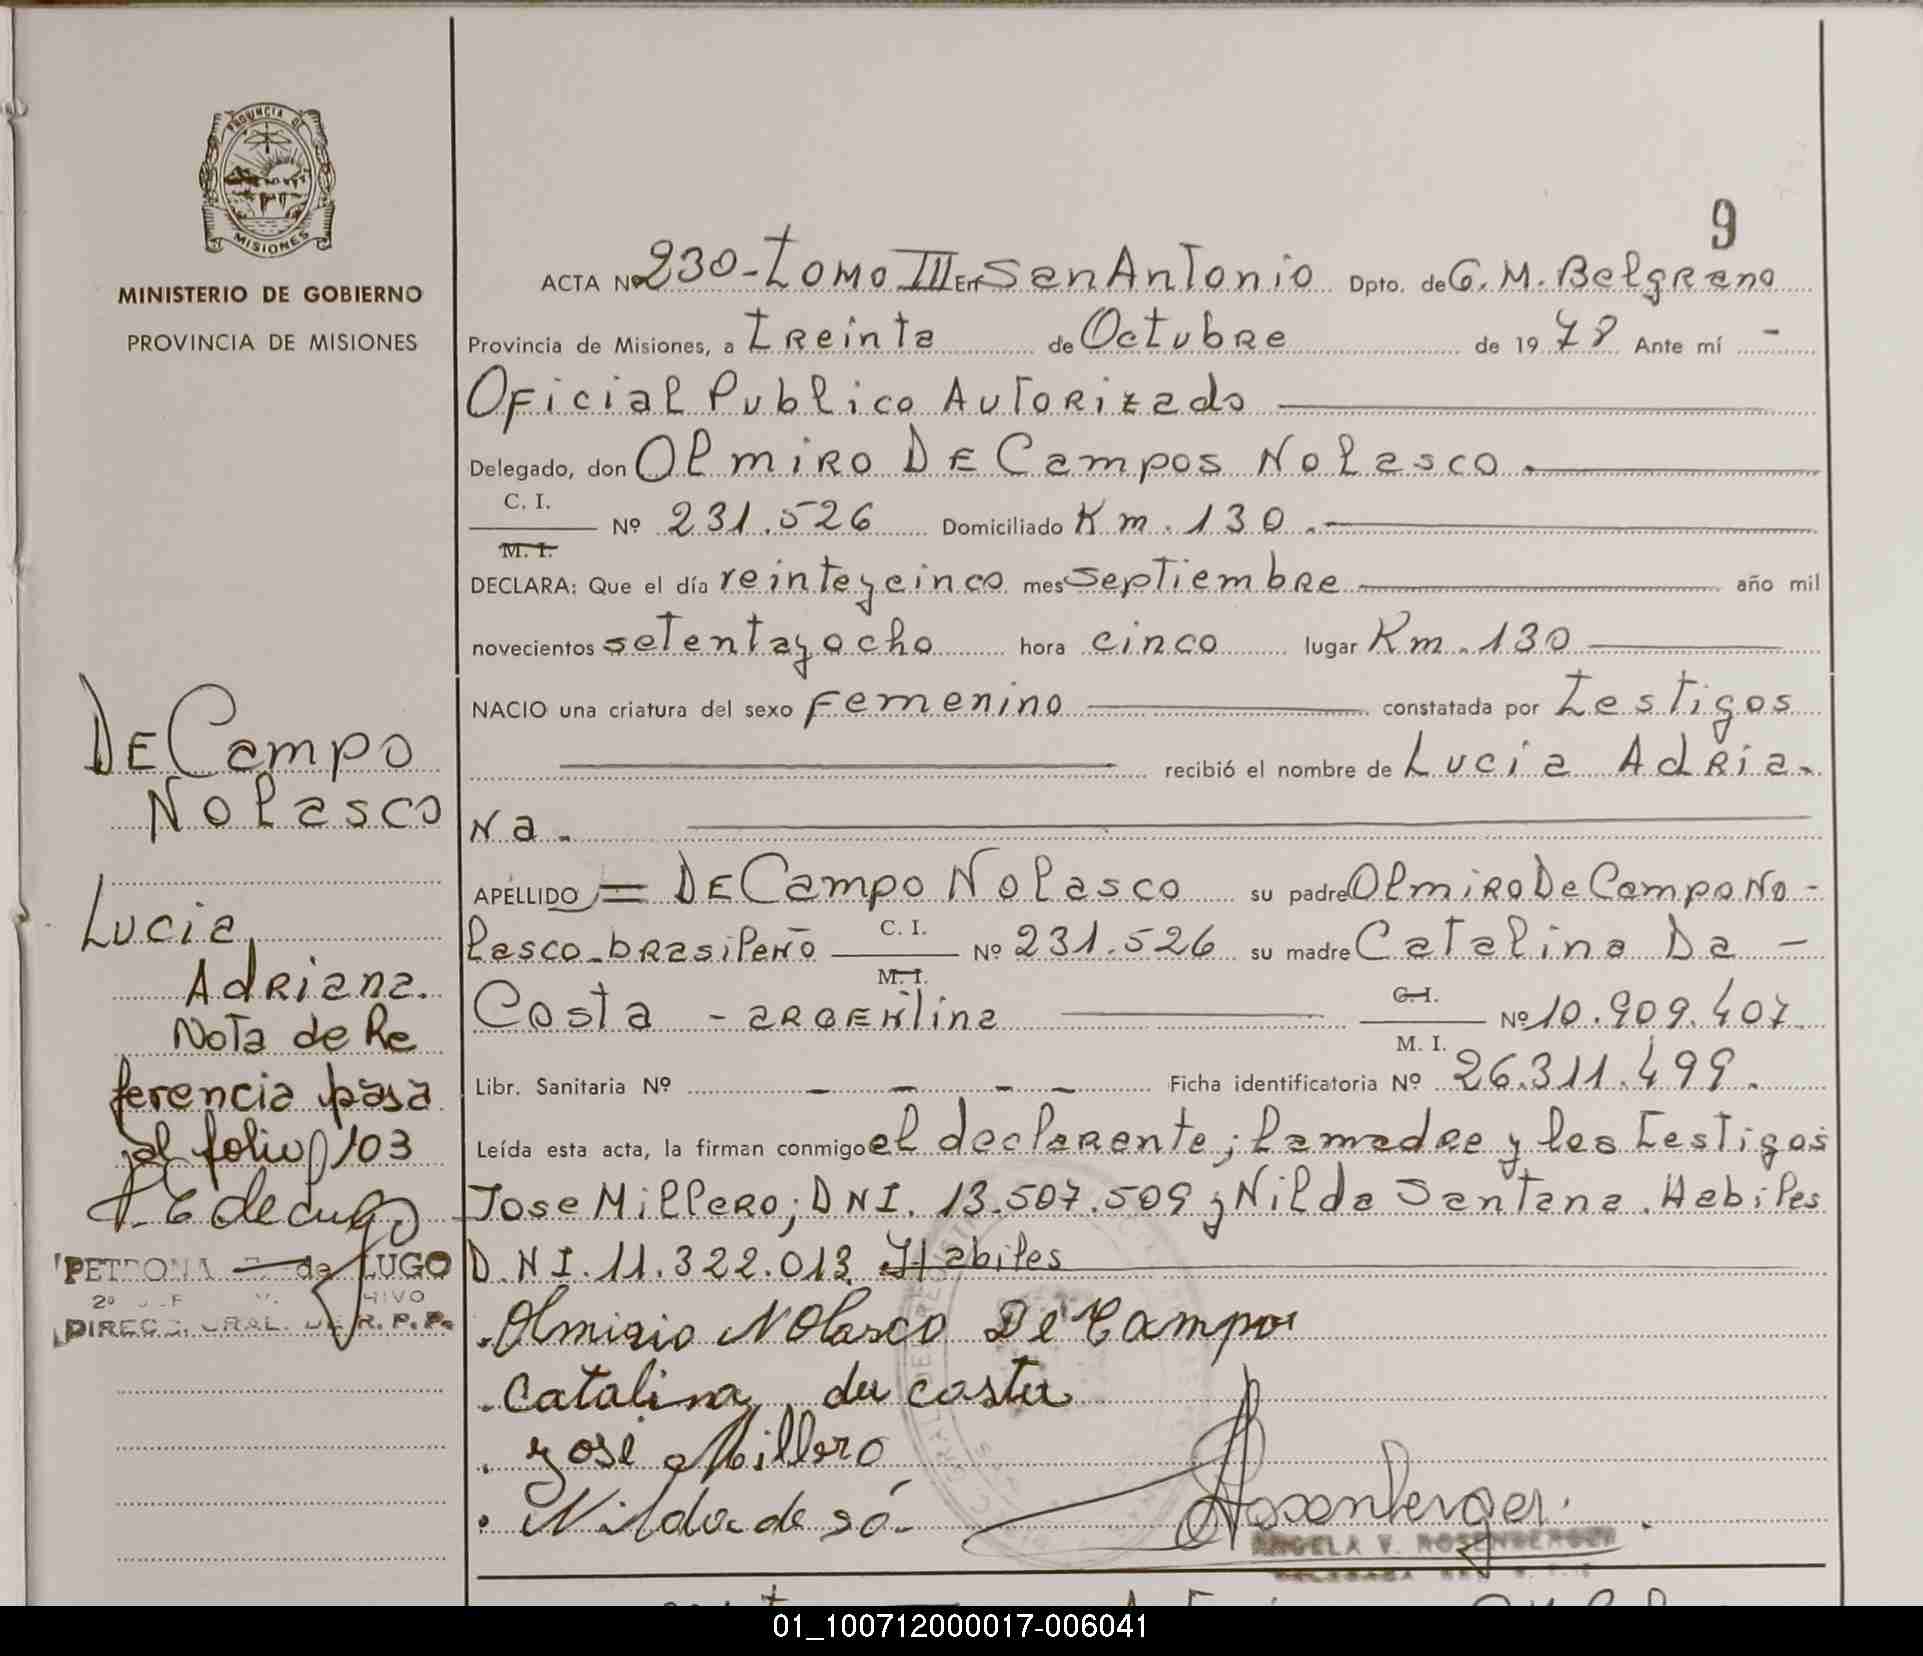 PROVINCIA DE
MISIONES
MINISTERIO DE GOBIERNO
PROVINCIA DE MISIONES
9
ACTA Nº 230-Tomo III En San Antonio Dpto. de G. M. Belgrano
Provincia de Misiones, a treinta de Octubre de 1978 Ante mí -
Oficial Publico Autorizado
Delegado, don Olmiro De Campos Nolasco.
C. I.
Nº 231.526 Domiciliado Km. 130.
M. I.
DECLARA: Que el día veinteycinco mes Septiembre año mil
novecientos setentayocho hora cinco lugar Km. 130
NACIO una criatura del sexo Femenino constatada por Testigos
recibió el nombre de Lucia Adria-
na.
APELLIDO = De Campo Nolasco su padre Olmiro De Campo No-
lasco-brasileño C. I. Nº 231.526 su madre Catalina Da -
M. I.
Costa - argentina C. I. Nº 10.909.407.
M. I.
Libr. Sanitaria Nº - - - - Ficha identificatoria Nº 26.311.499.
Leída esta acta, la firman conmigo el declarante; la madre y los Testigos
Jose Millero; DNI. 13.507.509 y Nilda Santana. Habiles
D.N.I. 11.322.013. Habiles
Olmirio Nolasco De Campos
Catalina da costa
Jose Millero
Nilda de sá
Rosenberger
ANGELA V. ROSENBERGER
DELEGADA
De Campo
Nolasco
Lucia
Adriana.
Nota de Re
ferencia pasa
al folio 103
P. E de Lugo
PETRONA E. de LUGO
DIREC. GRAL. DE R. P. P.
01_100712000017-006041